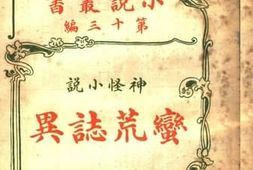 小說叢書
第十三編
神怪小說
蠻荒誌異